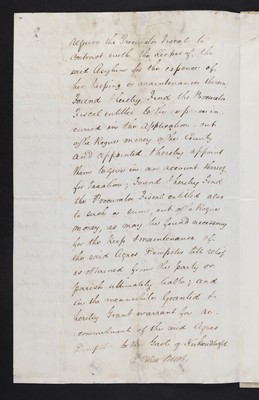 2
require the Procurator Fiscal to
contract with the Keeper of the
said Asylum for the expense of
her keeping & maintenance therein
Found & hereby Find the Procurator
Fiscal entitled to the expenses in-
curred in this Application out
of the Rogue money of the County
and appointed & hereby appoint
them to give in an account thereof
for taxation; Found & hereby Find
the Procurator Fiscal entitled also
to such a sum, out of Rogue
money, as may be found necessary
for the keep & maintenance of
the said Agnes Dempster till relief
is obtained from the party or
parish ultimately liable; and
in the meanwhile Granted &
hereby Grant warrant for
commitment of the said Agnes
Dempster to the Gaol of Kirkcudbright